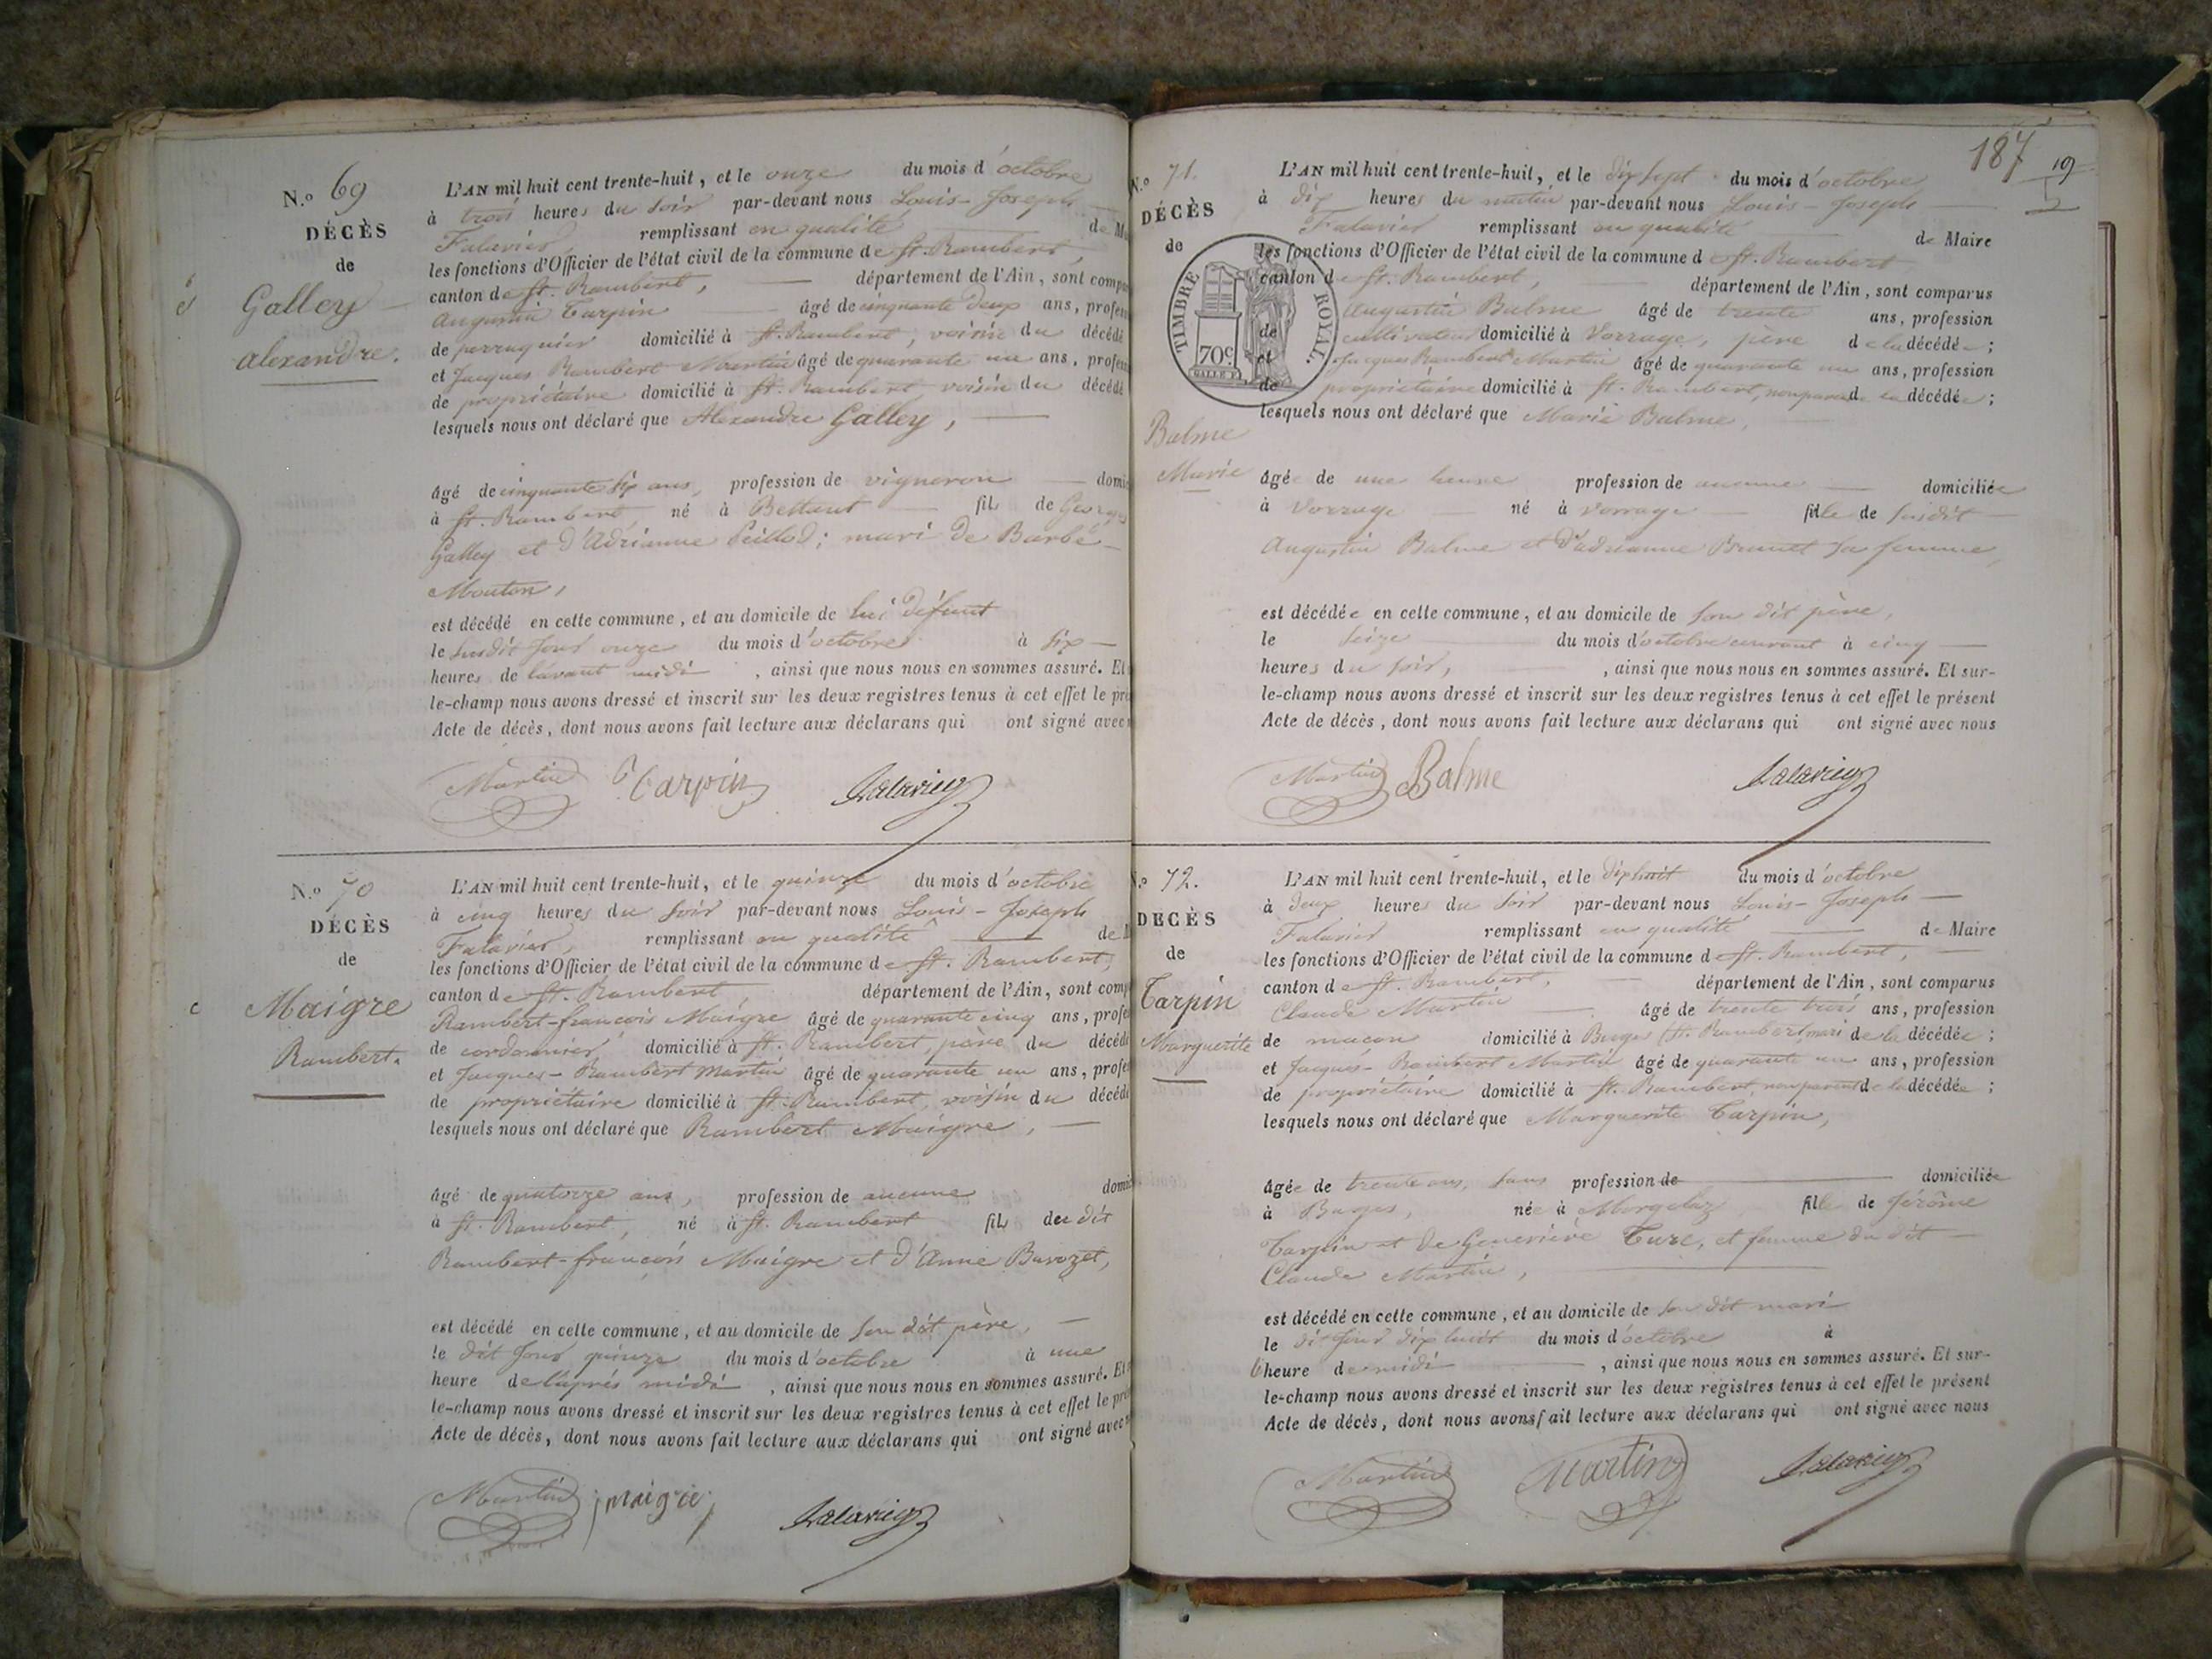 N.o 69
DÉCÈS
de
Galley
Alexandre.
L'AN mil huit cent trente-huit, et le onze du mois d'octobre
à trois heures du soir par-devant nous Louis-Joseph
Falavier remplissant en qualité de M
les fonctions d'Officier de l'état civil de la commune de St. Rambert,
canton de St. Rambert, département de l'Ain, sont compa
Augustin Tarpin âgé de cinquante deux ans, profess
de perruquier domicilié à St. Rambert, voisin du décédé
et Jacques Rambert Martin âgé de quarante un ans, profess
de propriétaire domicilié à St. Rambert voisin du décédé
lesquels nous ont déclaré que Alexandre Galley,
âgé de cinquante six ans, profession de vigneron domic
à St. Rambert, né à Bettant fils de Georges
Galley et d'Adrianne Peillod; mari de Barbe
Mouton,
est décédé en cette commune, et au domicile de lui défunt
le susdit jour onze du mois d'octobre à six
heures de l'avant midi, ainsi que nous nous en sommes assuré. Et
le-champ nous avons dressé et inscrit sur les deux registres tenus à cet effet le pré
Acte de décès, dont nous avons fait lecture aux déclarans qui ont signé avec
Martin Tarpin Falavier
N.o 70
DÉCÈS
de
Maigre
Rambert.
L'AN mil huit cent trente-huit, et le quinze du mois d'octobre
à cinq heures du soir par-devant nous Louis-Joseph
Falavier, remplissant en qualité de
les fonctions d'Officier de l'état civil de la commune de St. Rambert,
canton de St. Rambert département de l'Ain, sont comp
Rambert-françois Maigre âgé de quarante cinq ans, profes
de cordonnier domicilié à St. Rambert, père du décédé
et Jacques-Rambert Martin âgé de quarante un ans, profes
de propriétaire domicilié à St. Rambert, voisin du décédé
lesquels nous ont déclaré que Rambert Maigre,
âgé de quatorze ans, profession de aucune domic
à St. Rambert, né à St. Rambert fils du dit
Rambert-françois Maigre et d'Anne Bavozet,
est décédé en cette commune, et au domicile de son dit père,
le dit jour quinze du mois d'octobre à une
heure de l'après midi, ainsi que nous nous en sommes assuré. Et
le-champ nous avons dressé et inscrit sur les deux registres tenus à cet effet le pré
Acte de décès, dont nous avons fait lecture aux déclarans qui ont signé avec
Martin maigre Falavier
187
19
N.o 71.
DÉCÈS
de
TIMBRE ROYAL.
70c
Balme
Marie
L'AN mil huit cent trente-huit, et le dix sept du mois d'octobre
à dix heures du matin par-devant nous Louis-Joseph
Falavier remplissant en qualité de Maire
les fonctions d'Officier de l'état civil de la commune de St. Rambert
canton de St. Rambert, département de l'Ain, sont comparus
Augustin Balme âgé de trente ans, profession
de cultivateur domicilié à Vorrage, père de la décédée;
et Jacques Rambert Martin âgé de quarante un ans, profession
de propriétaire domicilié à St. Rambert, non parent de la décédée;
lesquels nous ont déclaré que Marie Balme,
âgée de une heure profession de aucune domiciliée
à Vorrage né à Vorrage fille de susdit
Augustin Balme et d'adrianne Brunet sa femme,
est décédée en cette commune, et au domicile de son dit père,
le seize du mois d'octobre courant à cinq
heures du soir, , ainsi que nous nous en sommes assuré. Et sur-
le-champ nous avons dressé et inscrit sur les deux registres tenus à cet effet le présent
Acte de décès, dont nous avons fait lecture aux déclarans qui ont signé avec nous
Martin Balme Falavier
N.o 72.
DÉCÈS
de
Tarpin
Marguerite
L'AN mil huit cent trente-huit, et le dix huit du mois d'octobre
à deux heures du soir par-devant nous Louis-Joseph
Falavier remplissant en qualité de Maire
les fonctions d'Officier de l'état civil de la commune de St. Rambert,
canton de St. Rambert, département de l'Ain, sont comparus
Claude Martin âgé de trente trois ans, profession
de maçon domicilié à Buges (St. Rambert) mari de la décédée;
et Jacques-Rambert Martin âgé de quarante un ans, profession
de propriétaire domicilié à St. Rambert, non parent de la décédée;
lesquels nous ont déclaré que Marguerite Tarpin,
âgée de trente ans, sans profession de domiciliée
à Buges, née à Morgelaz fille de Jérôme
Tarpin et de Geneviève Ture, et femme du dit
Claude Martin,
est décédé en cette commune, et au domicile de son dit mari
le dit jour dix huit du mois d'octobre à
heure de midi , ainsi que nous nous en sommes assuré. Et sur-
le-champ nous avons dressé et inscrit sur les deux registres tenus à cet effet le présent
Acte de décès, dont nous avons fait lecture aux déclarans qui ont signé avec nous
Martin Martin Falavier